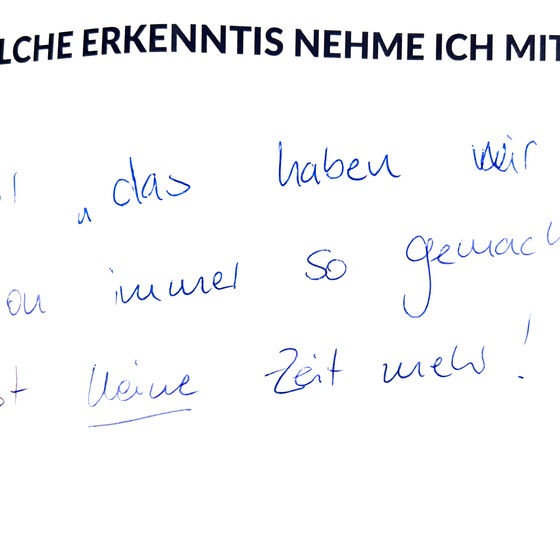 LCHE ERKENNTIS NEHME ICH MIT
„das haben wir
on immer so gemach
st keine Zeit mehr!